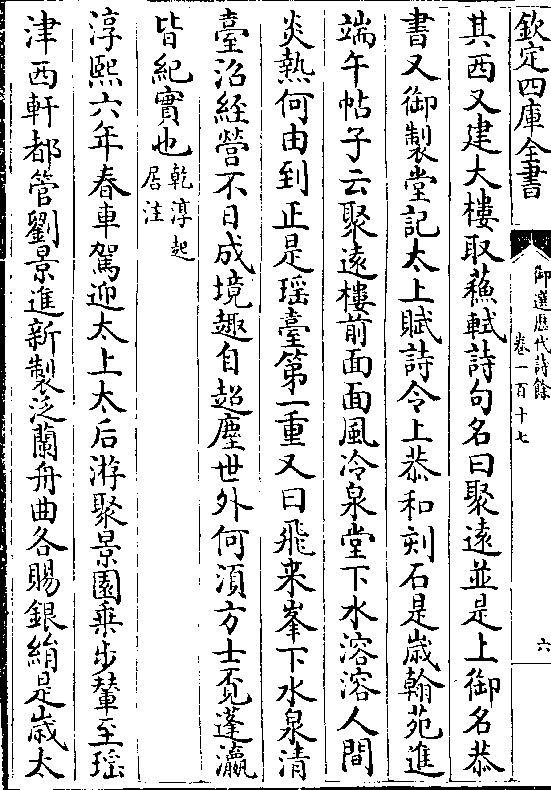 欽定四庫全書
御選歴代詩餘
卷一百十七
六
其西又建大樓取蘓軾詩句名曰聚逺並是上御名恭
書又御製堂記太上賦詩令上恭和刻石是嵗翰苑進
端午帖子云聚逺樓前面面風冷泉堂下水溶溶人間
炎熱何由到正是瑶臺第一重又曰飛来峯下水泉清
臺沼經營不日成境趣自超塵世外何湏方士覔蓬瀛
皆紀實也乾淳起
居注
淳熙六年春車駕迎太上太后游聚景園乗步輦至瑶
津西軒都管劉景進新製泛蘭舟曲各賜銀絹是嵗太